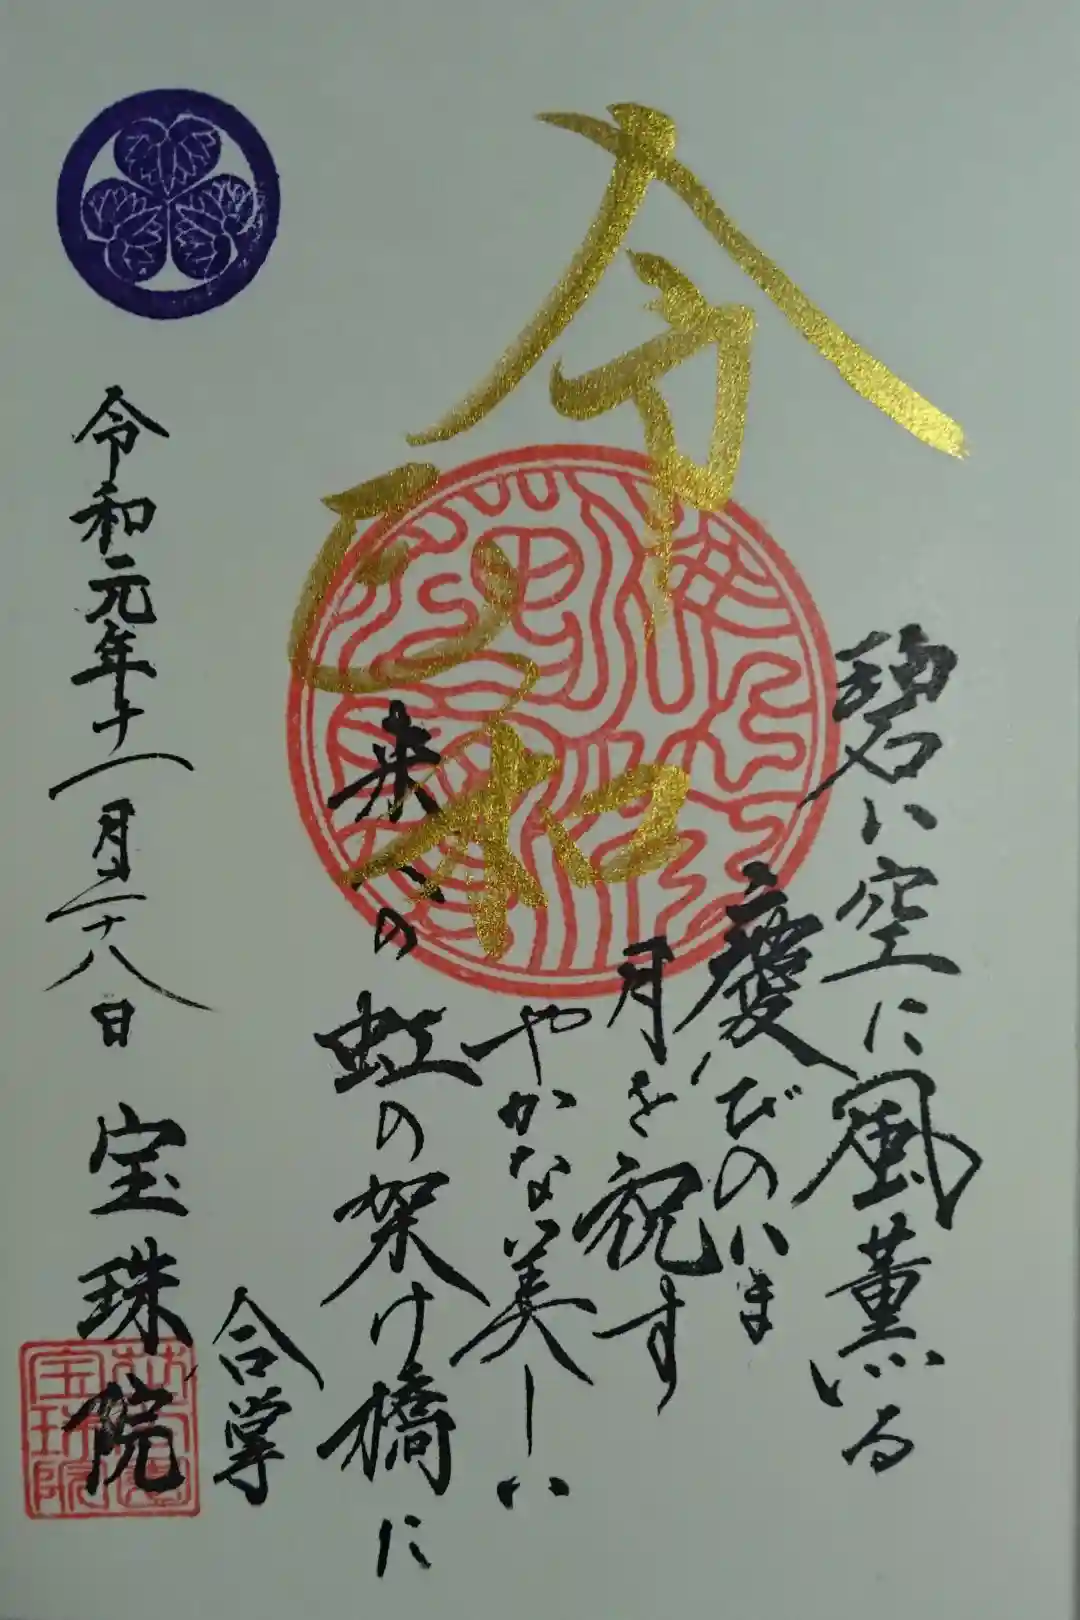 碧い空に風薫る
慶びのいま
令月を祝す
和やかな美しい
来への虹の架け橋に
合掌
令和元年十一月二十八日 宝珠院
芝公園
宝珠院